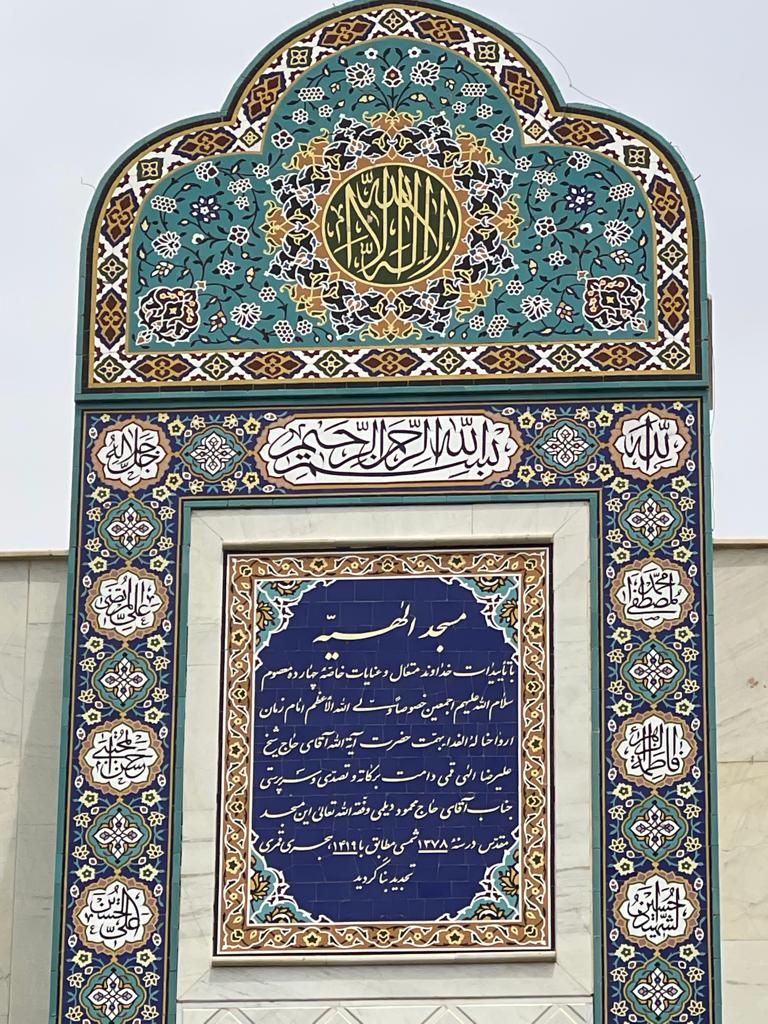 لا اله الا الله
الله
بسم الله الرحمن الرحیم
جل جلاله
محمد مصطفی
علی المرتضی
فاطمة الزهراء
حسن المجتبی
حسین الشهید
علی بن الحسین
مسجد الهیّه
با تاییدات خداوند متعال و عنایات خاصّهٔ چهارده معصوم
سلام الله علیهم اجمعین خصوصاً ولی الله الأعظم امام زمان
ارواحنا له الفدا بهمت حضرت آیة الله آقای حاج شیخ
علیرضا الهی قمی دامت برکاته و تصدّی و سرپرستی
جناب آقای حاج محمود دیلمی وفقه الله تعالی این مسجد
مقدّس در سنهٔ ۱۳۷۸ شمسی مطابق با ۱۴۱۹ هجری قمری
تجدید بنا گردید